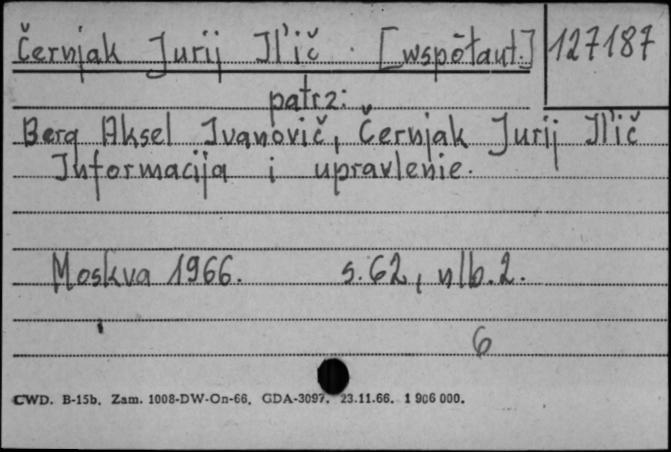 Černjak Jurij Il'ič . [współaut.] 127187
patrz:
Berg Aksel Ivanovič, Černjak Jurij Il'ič
Informacija i upravlenie.
Moskva 1966. s. 62, nlb. 2.
6
CWD. B-15b. Zam. 1008-DW-On-66. GDA-3097. 23.11.66. 1 906 000.